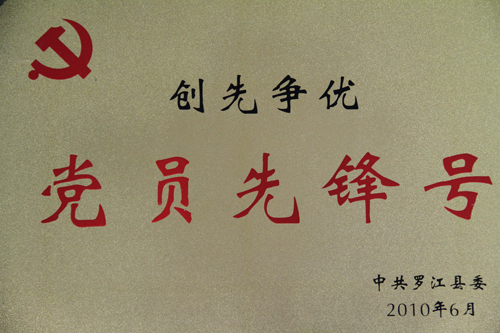 创先争优
党员先锋号
中共罗江县委
2010年6月